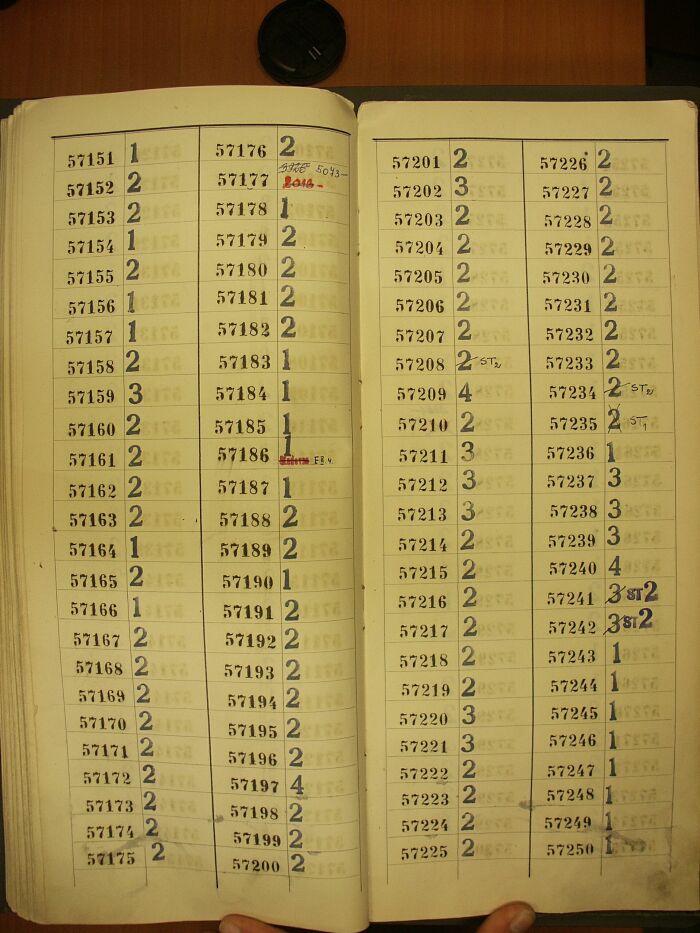 57151 1
57152 2
57153 2
57154 1
57155 2
57156 1
57157 1
57158 2
57159 3
57160 2
57161 2
57162 2
57163 2
57164 1
57165 2
57166 1
57167 2
57168 2
57169 2
57170 2
57171 2
57172 2
57173 2
57174 2
57175 2
57176 2
5073-
57177
57178 1
57179 2
57180 2
57181 2
57182 2
57183 1
57184 1
57185 1
57186 1
57187 1
57188 2
57189 2
57190 1
57191 2
57192 2
57193 2
57194 2
57195 2
57196 2
57197 4
57198 2
57199 2
57200 2
57201 2
57202 3
57203 2
57204 2
57205 2
57206 2
57207 2
57208 2 ST2
57209 4
57210 2
57211 3
57212 3
57213 3
57214 2
57215 2
57216 2
57217 2
57218 2
57219 2
57220 3
57221 3
57222 2
57223 2
57224 2
57225 2
57226 2
57227 2
57228 2
57229 2
57230 2
57231 2
57232 2
57233 2
57234 2 ST2
57235 2 ST1
57236 1
57237 3
57238 3
57239 3
57240 4
57241 3 ST2
57242 3 ST2
57243 1
57244 1
57245 1
57246 1
57247 1
57248 1
57249 1
57250 1